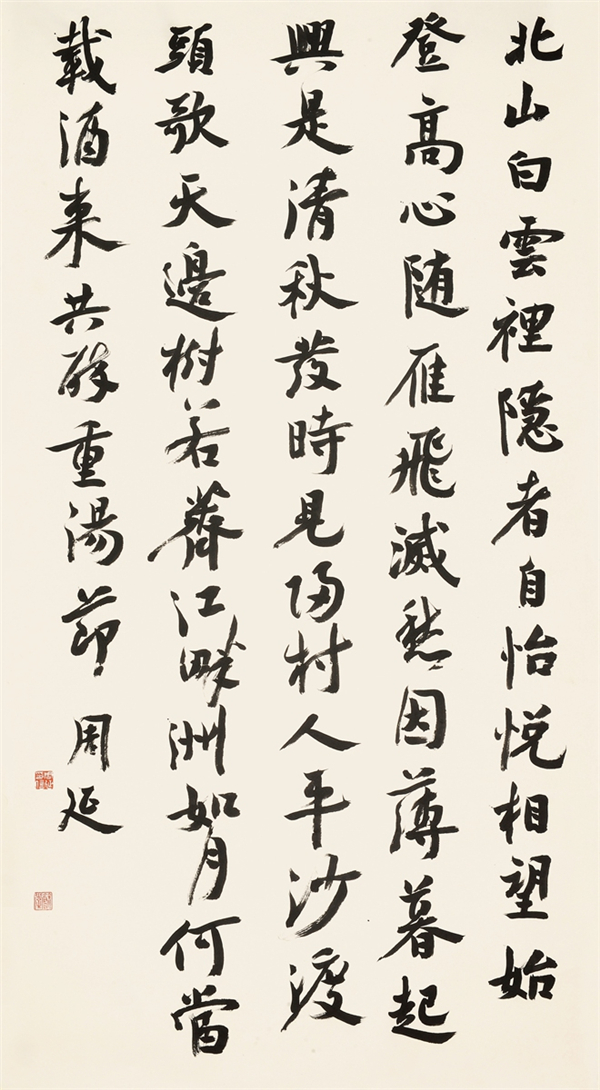 北山白雲裡隱者自怡悅相望始
登高心随雁飛滅愁因薄暮起
興是清秋發時見歸村人平沙渡
頭歌天邊樹若薺江畔洲如月何當
載酒來共醉重湯節 周延